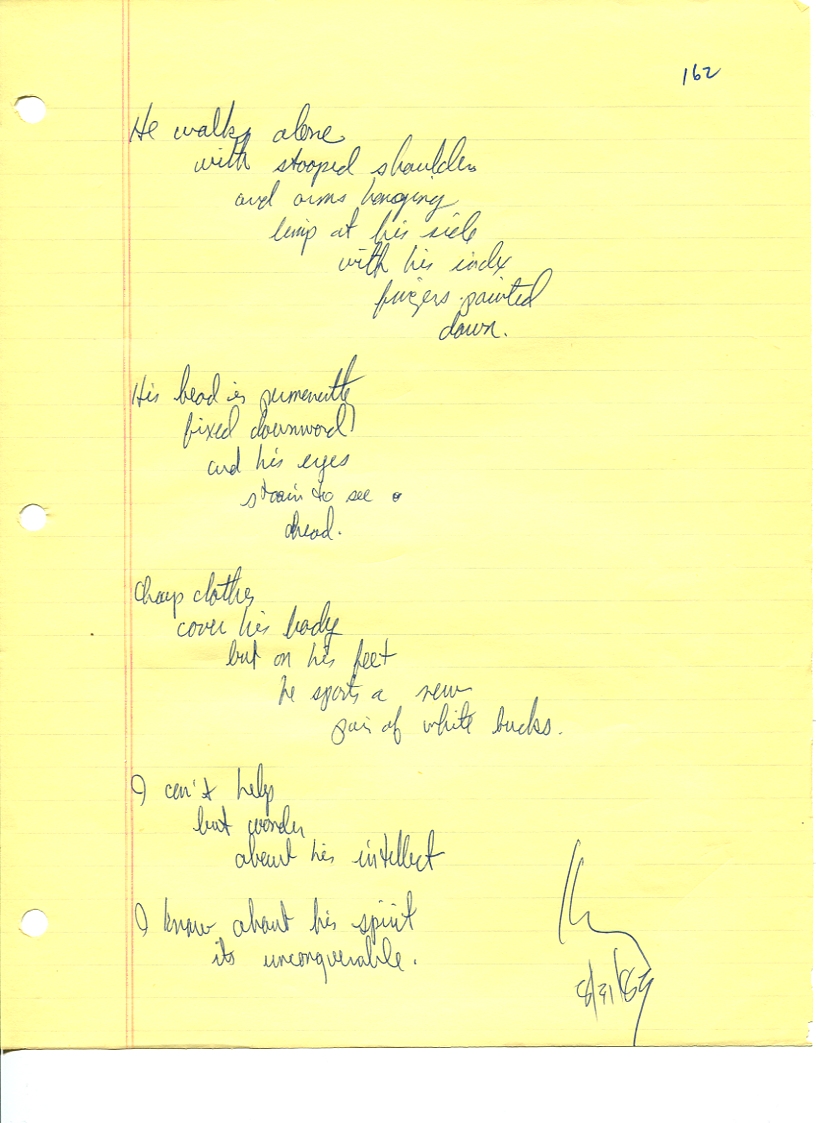 162
He walks alone
with stooped shoulders
and arms hanging
limp at his side
with his index
fingers pointed
down.
His head is permenatly
fixed downword
and his eyes
strain to see
ahead.
Cheap clothes
cover his body
but on his feet
he sports a new
pair of white bucks.
I can't help
but wonder
about his intellect
I know about his spirit
its unconquerable.